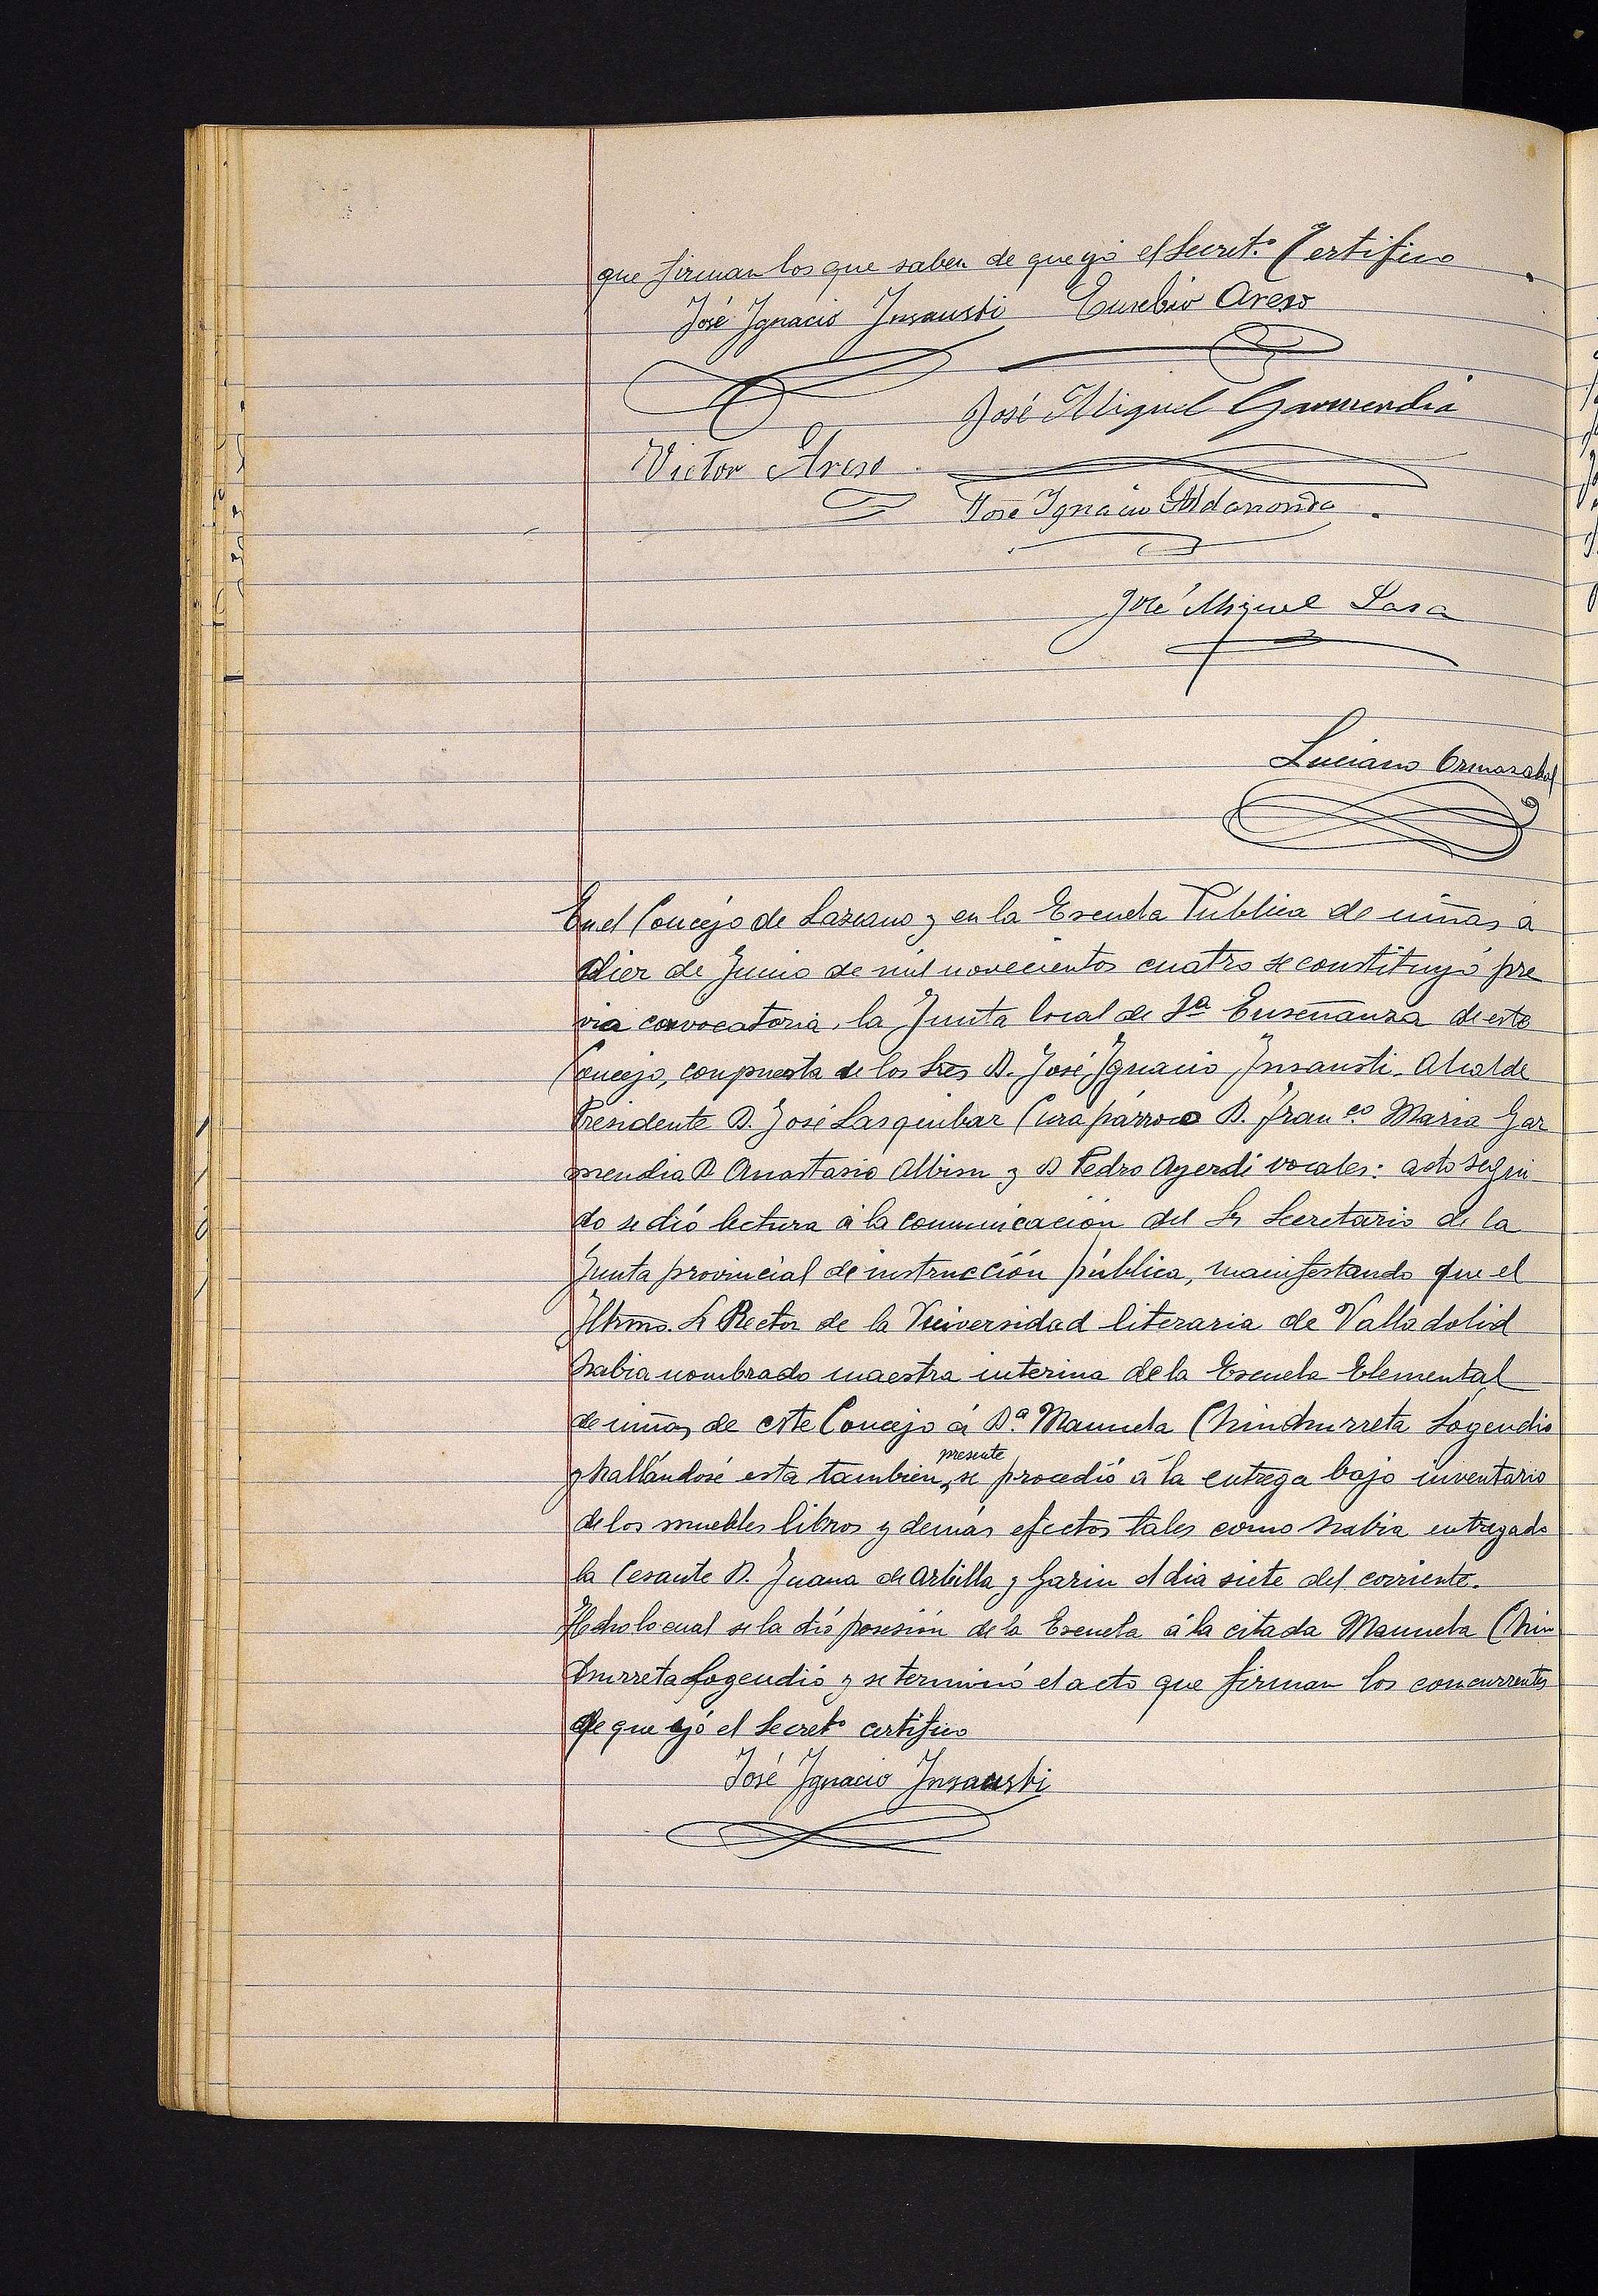 que firman los que saben de que yó el Secret.º Certifico
José Ygnacio Ynsausti Eusebio Areso
José Miguel Garmendia
Victor Areso
José Ygnacio Aldanondo
José Miguel Lasa
Luciano Ormazabal
En el Concejo de Lazcano y en la Escuela Pública de niñas á
diez de Junio de mil novecientos cuatro se constituyó pre
via convocatoria, la Junta local de 1ª Enseñanza de este
Concejo, conpuesta de los Sres D. José Ygnacio Ynsausti Alcalde
Presidente D. José Lasquibar Cura párroco D. Fran.co Maria Gar
mendia D Anastasio Albisu y D Pedro Ayerdi vocales: acto segui
do se dió lectura á la comunicación del Sr Secretario de la
Junta provincial de instrucción pública, manifestando que el
Yltrmo. Sr Rector de la Universidad literaria de Valladolid
habia nombrado maestra interina de la Escuela Elemental
de niñas de este Concejo á Dª Manuela Chinchurreta Sogendio
y hallándose esta tambien presente, se procedió á la entrega bajo inventario
de los muebles libros y demás efectos tales como habia entregado
la Cesante D. Juana de Arbilla y Garin el dia siete del corriente.
Hecho lo cual se la dió posesión de la Escuela á la citada Manuela Chin
churreta Sogendió y se terminó el acto que firman los concurrentes
de que yó el Secretº certifico
José Ygnacio Ynsausti